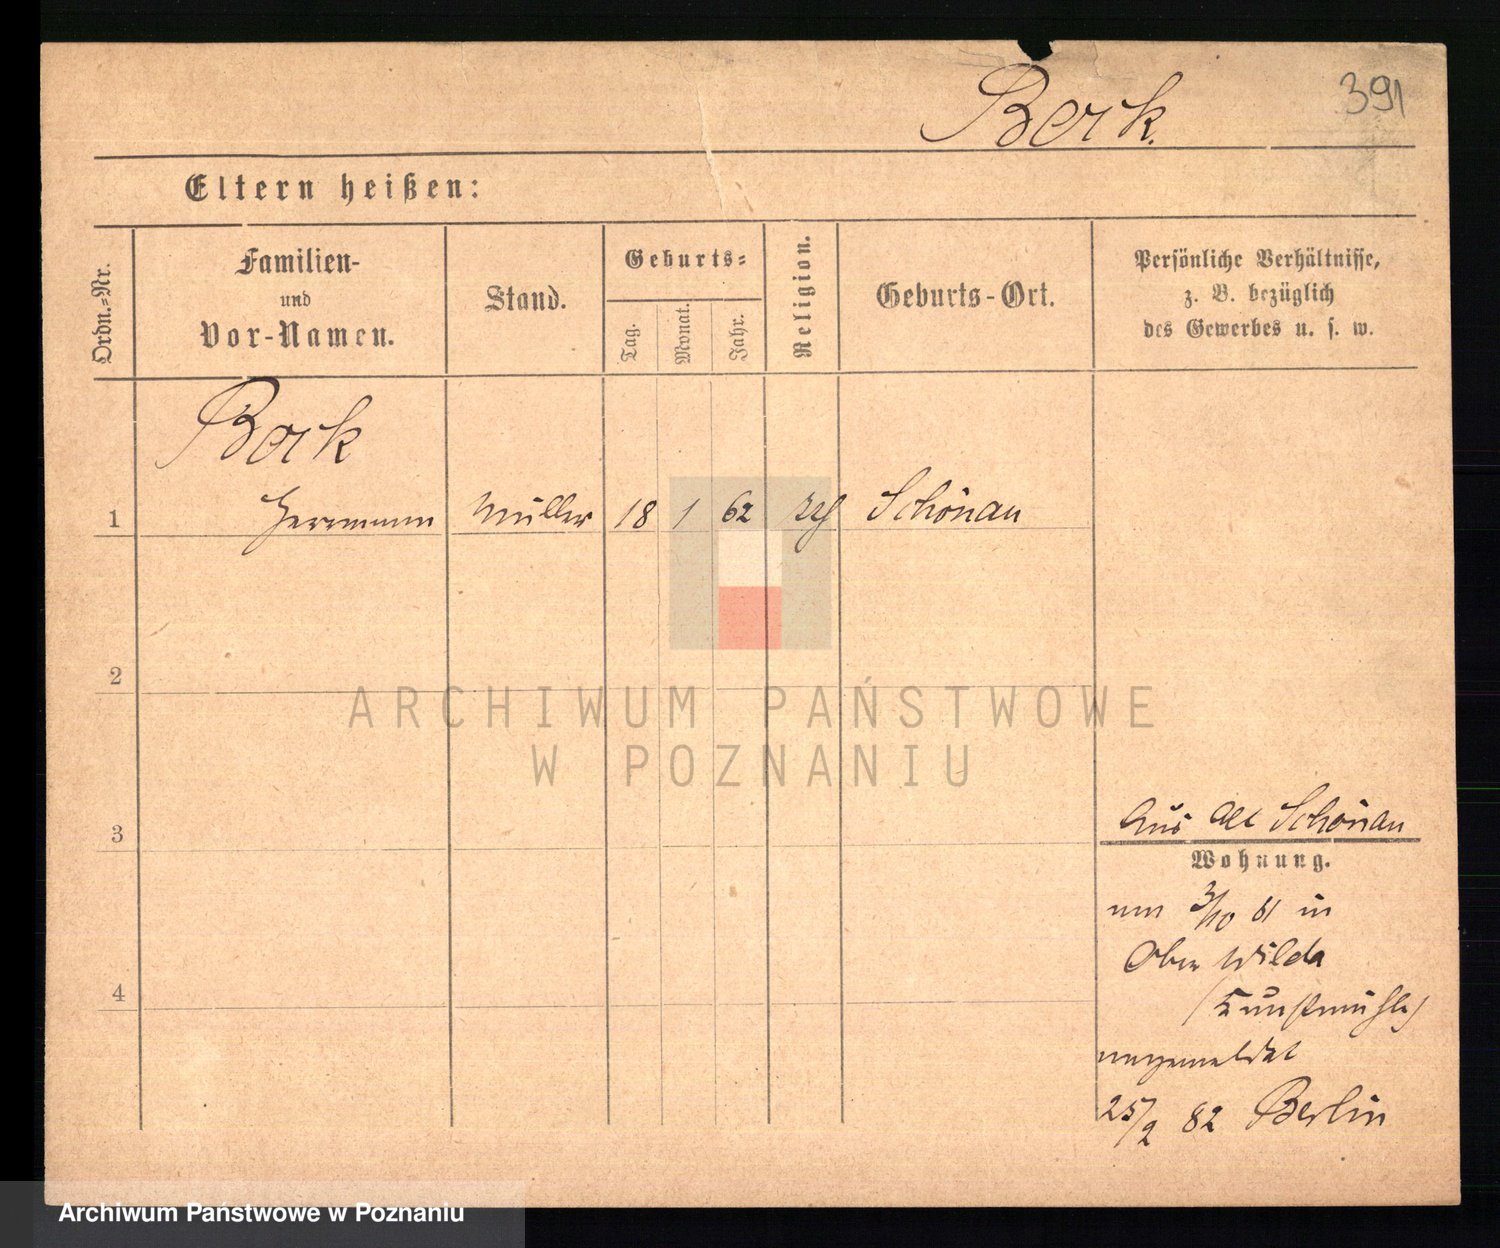 Berk.
391
Eltern heißen:
Ordn.-Nr.
Familien-
und
Vor-Namen.
Stand.
Geburts-
Tag.
Monat.
Jahr.
Religion.
Geburts-Ort.
Persönliche Verhältnisse,
z. B. bezüglich
des Gewerbes u. s. w.
Berk
1 Herrmann Müller 18 1 62 Schönau
2
3
4
Aus Alt Schönau
Wohnung.
am 3/10 81 in
Ober Wilda
(Kunstmühle)
angemeldet
25/2 82 Berlin
ARCHIWUM PAŃSTWOWE
W POZNANIU
Archiwum Państwowe w Poznaniu